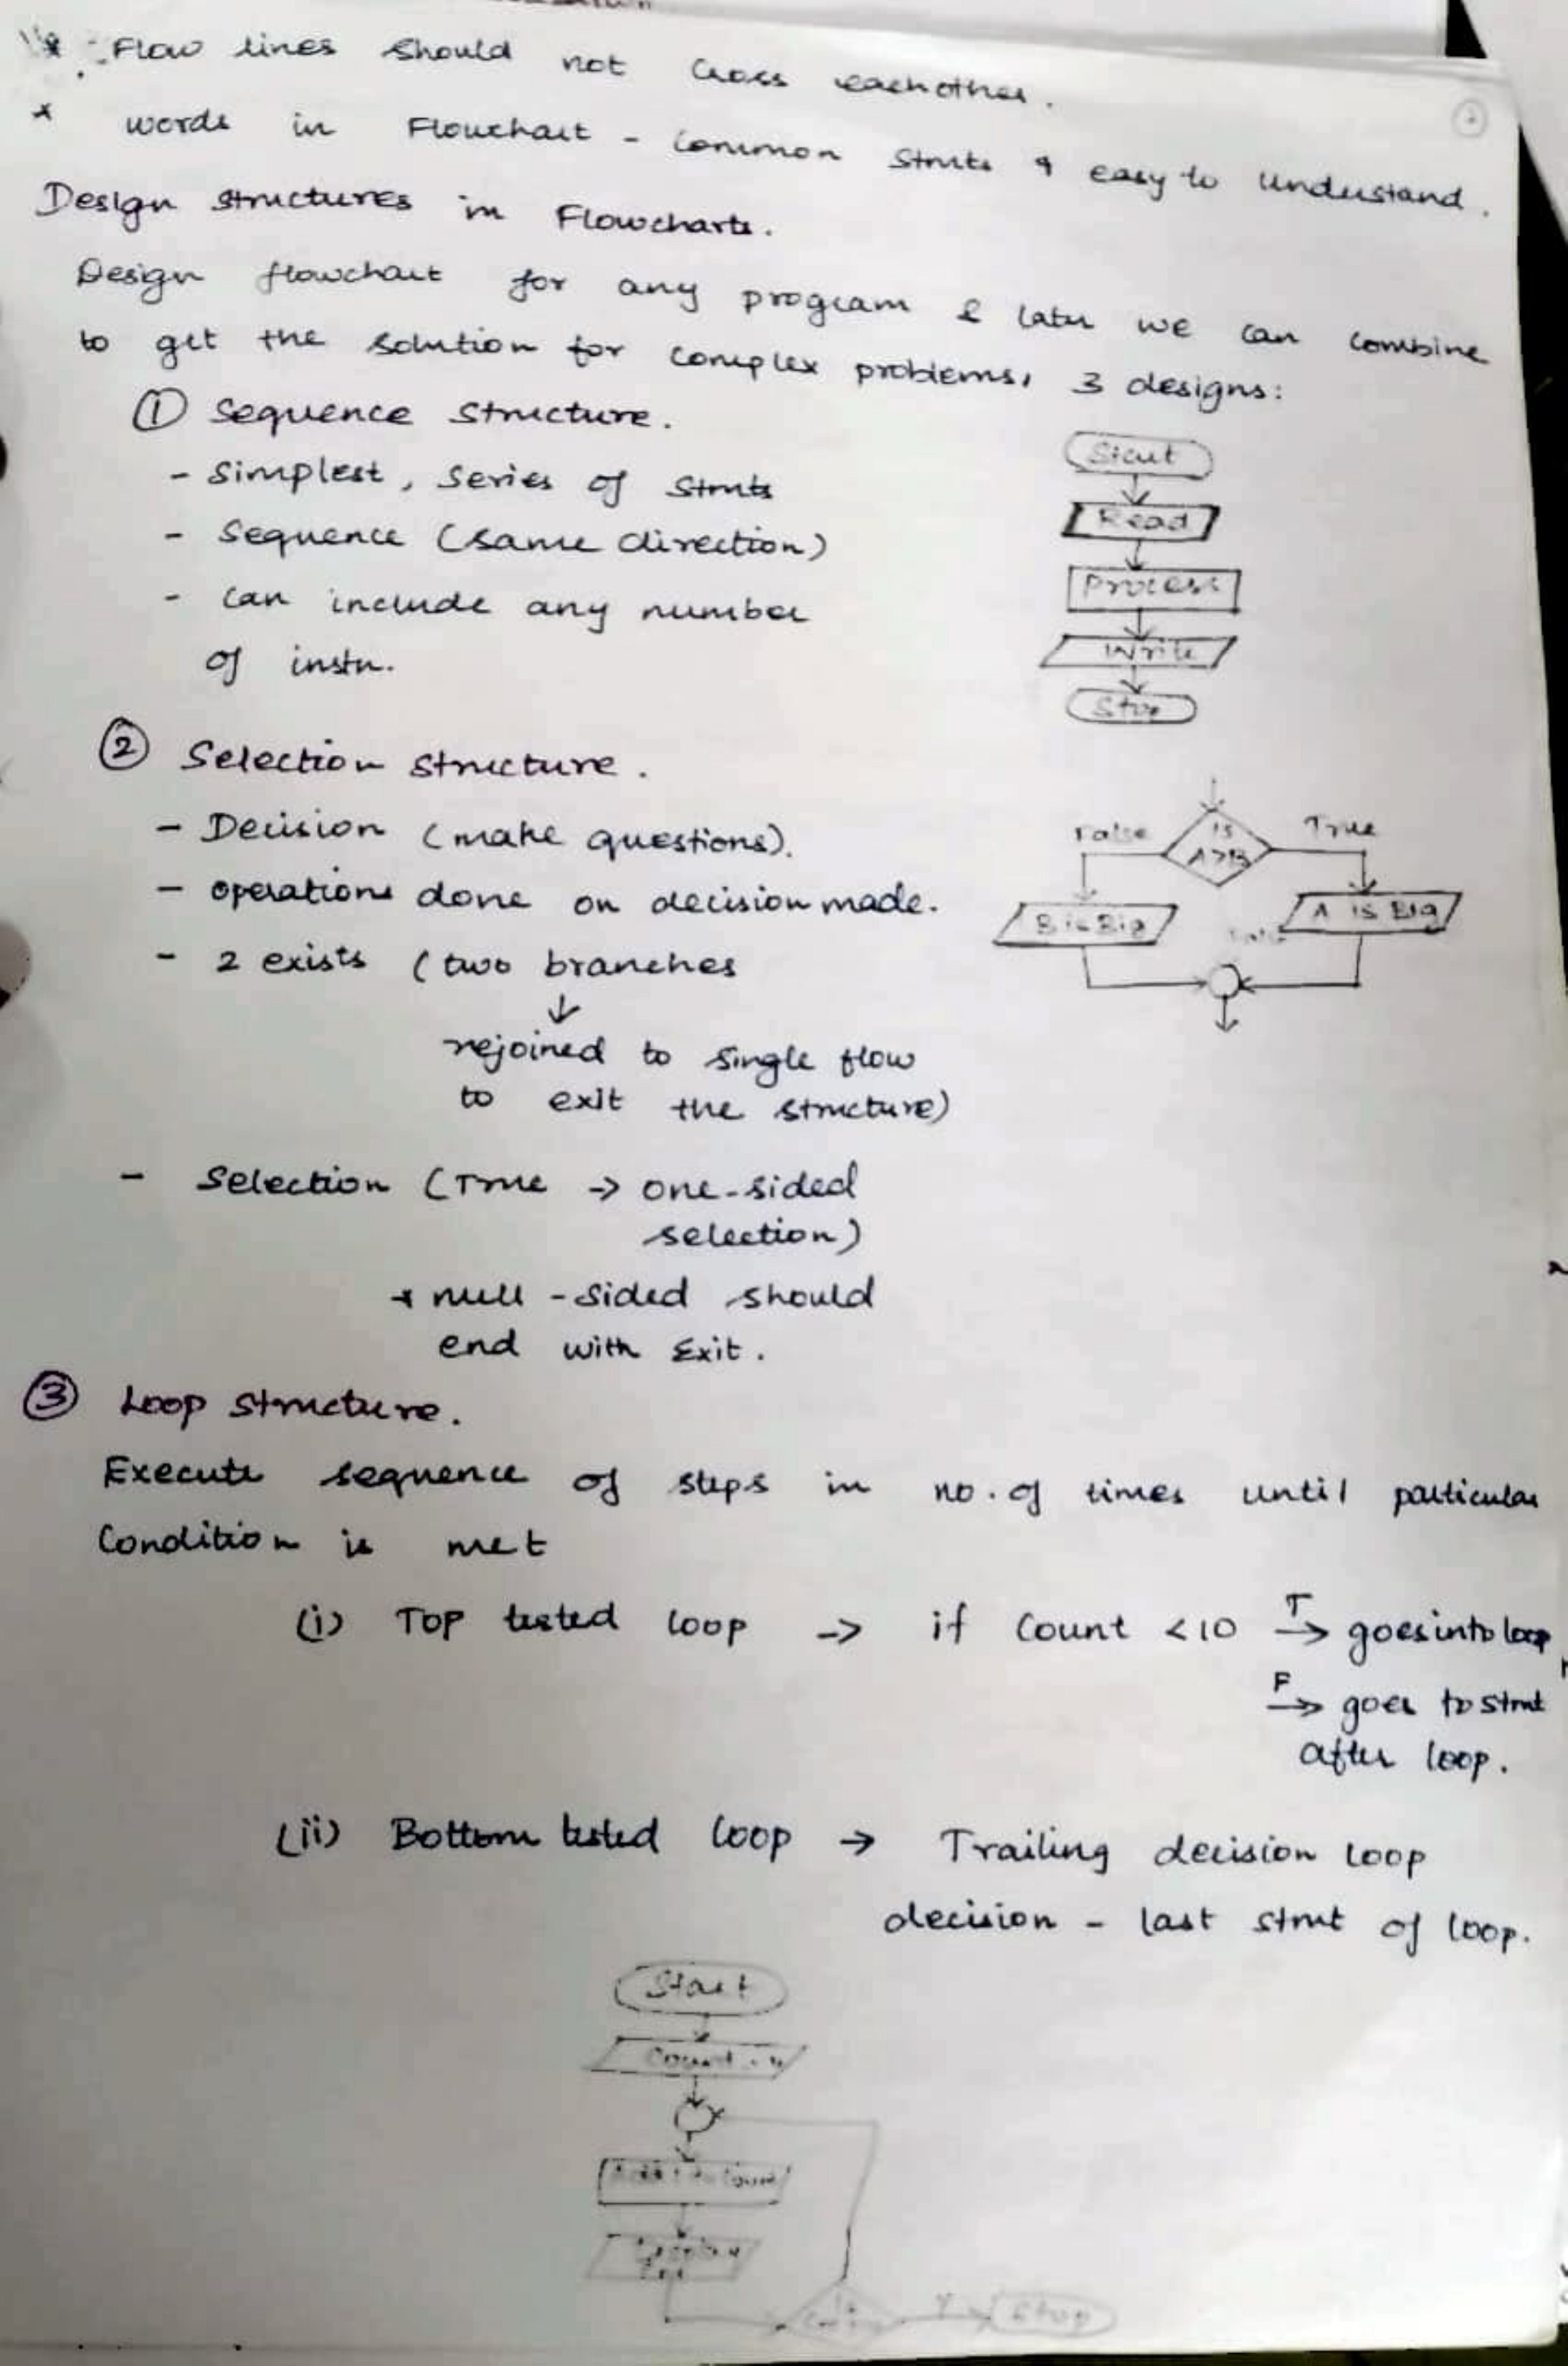 * Flow lines should not cross eachother.
* words in Flowchart - Common Stmts & easy to understand.
Design structures in Flowcharts.
Design flowchart for any program & later we can combine
to get the solution for complex problems, 3 designs:
① Sequence Structure.
- Simplest, Series of Stmts
- Sequence (same direction)
- can include any number
of instn.
Start
Read
Process
Write
Stop
② Selection structure.
- Decision (make questions).
- operations done on decision made.
- 2 exists (two branches
↓
rejoined to single flow
to exit the structure)
False
is
A>B
True
B is Big
A is Big
- Selection (True → one-sided
selection)
* null - sided should
end with Exit.
③ Loop structure.
Execute sequence of steps in no. of times until particular
Condition is met
(i) Top tested loop → if Count <10 T→ goes into loop,
F→ goes to stmt
after loop.
(ii) Bottom tested loop → Trailing decision loop
decision - last stmt of loop.
Start
Count
Count
Y
Stop